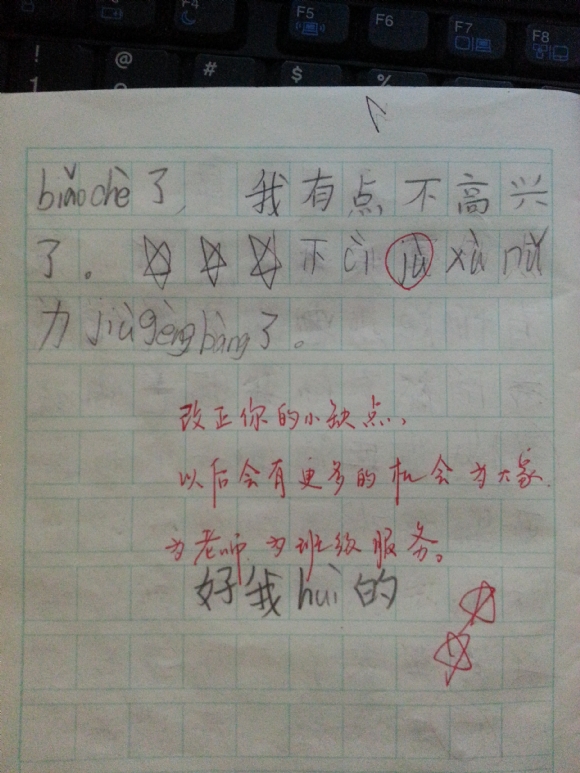 F4 F5 F6 F7 F8
! @ # $ %
1
biǎochè了，我有点不高兴
了。☆☆☆下cìjùxùnǔ
力jiùgèngbàng了。
改正你的小缺点，
以后会有更多的机会为大家
为老师为班级服务。
好我huì的